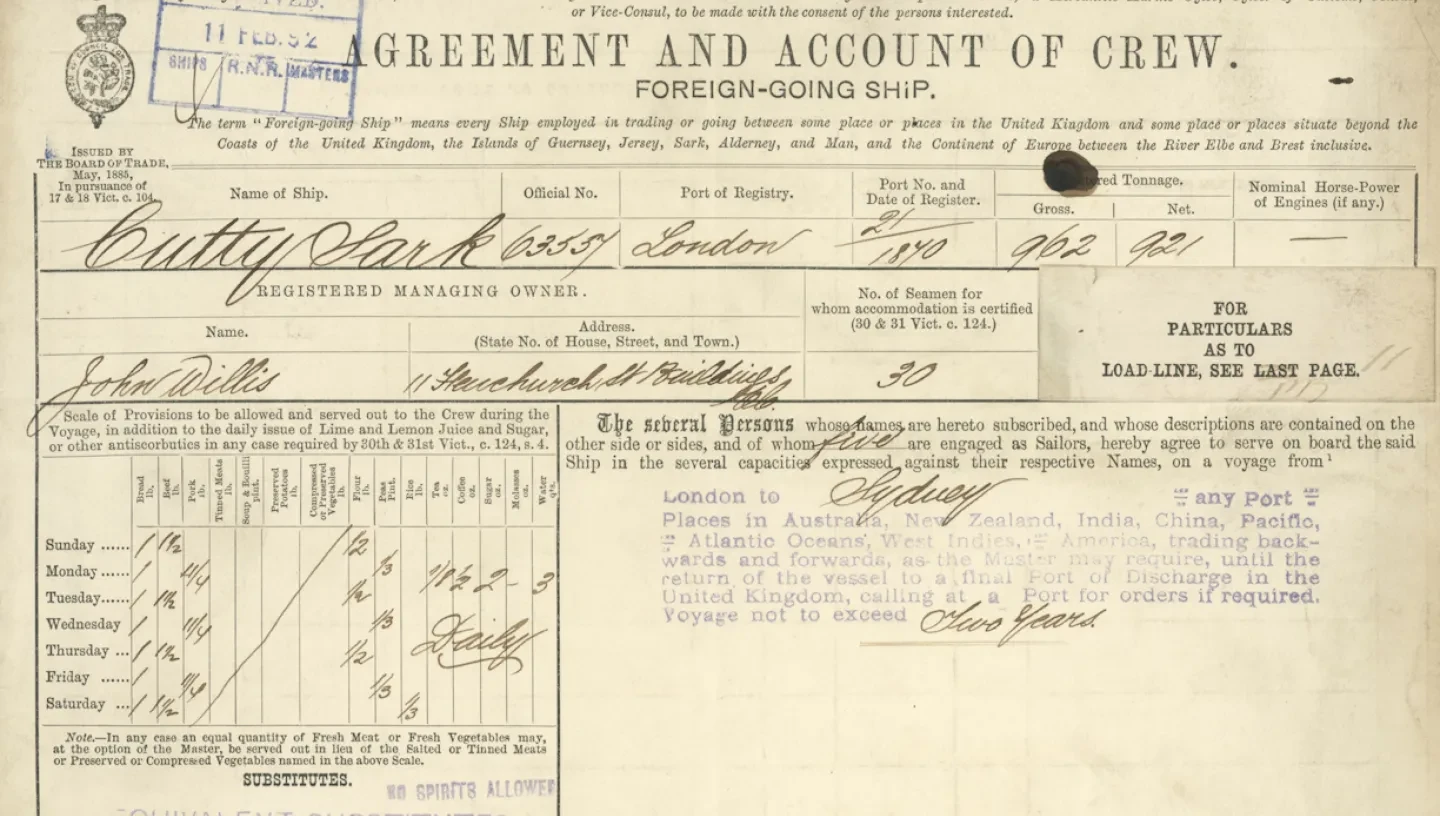 or Vice-Consul, to be made with the consent of the persons interested.
11 FEB. 92
SHIPS R.N.R. MASTERS
AGREEMENT AND ACCOUNT OF CREW.
FOREIGN-GOING SHIP.
The term "Foreign-going Ship" means every Ship employed in trading or going between some place or places in the United Kingdom and some place or places situate beyond the
Coasts of the United Kingdom, the Islands of Guernsey, Jersey, Sark, Alderney, and Man, and the Continent of Europe between the River Elbe and Brest inclusive.
ISSUED BY
THE BOARD OF TRADE,
May, 1885,
In pursuance of
17 & 18 Vict. c. 104.
Name of Ship. Official No. Port of Registry. Port No. and Date of Register. Tonnage. Gross. Net. Nominal Horse-Power of Engines (if any.)
Cutty Sark 63557 London 21/1870 962 921 —
REGISTERED MANAGING OWNER.
No. of Seamen for
whom accommodation is certified
(30 & 31 Vict. c. 124.)
Name. Address.
(State No. of House, Street, and Town.)
John Willis 11 Fenchurch St Buildings 30
FOR
PARTICULARS
AS TO
LOAD-LINE, SEE LAST PAGE.
Scale of Provisions to be allowed and served out to the Crew during the
Voyage, in addition to the daily issue of Lime and Lemon Juice and Sugar,
or other antiscorbutics in any case required by 30th & 31st Vict., c. 124, s. 4.
Bread lb. Beef lb. Pork lb. Tinned Meats lb. Soup & Bouilli pint. Preserved Potatoes lb. Compressed or Preserved Vegetables lb. Flour lb. Peas Pint. Rice lb. Tea oz. Coffee oz. Sugar oz. Molasses oz. Water qts.
Sunday ...... 1 1½ 1/2
Monday ...... 1 1¼ 1/3 1/8 ½ 2 - 3
Tuesday...... 1 1½ 1/2
Wednesday 1 1¼ 1/3 Daily
Thursday ... 1 1½ 1/2
Friday ...... 1 1¼ 1/3
Saturday ... 1 1½ 1/3
Note.—In any case an equal quantity of Fresh Meat or Fresh Vegetables may,
at the option of the Master, be served out in lieu of the Salted or Tinned Meats
or Preserved or Compressed Vegetables named in the above Scale.
SUBSTITUTES.
NO SPIRITS ALLOWED
EQUIVALENT SUBSTITUTES
The several Persons whose names are hereto subscribed, and whose descriptions are contained on the
other side or sides, and of whom five are engaged as Sailors, hereby agree to serve on board the said
Ship in the several capacities expressed against their respective Names, on a voyage from¹
London to Sydney any Port
Places in Australia, New Zealand, India, China, Pacific,
Atlantic Oceans, West Indies, America, trading back-
wards and forwards, as the Master may require, until the
return of the vessel to a final Port of Discharge in the
United Kingdom, calling at a Port for orders if required.
Voyage not to exceed Two Years.